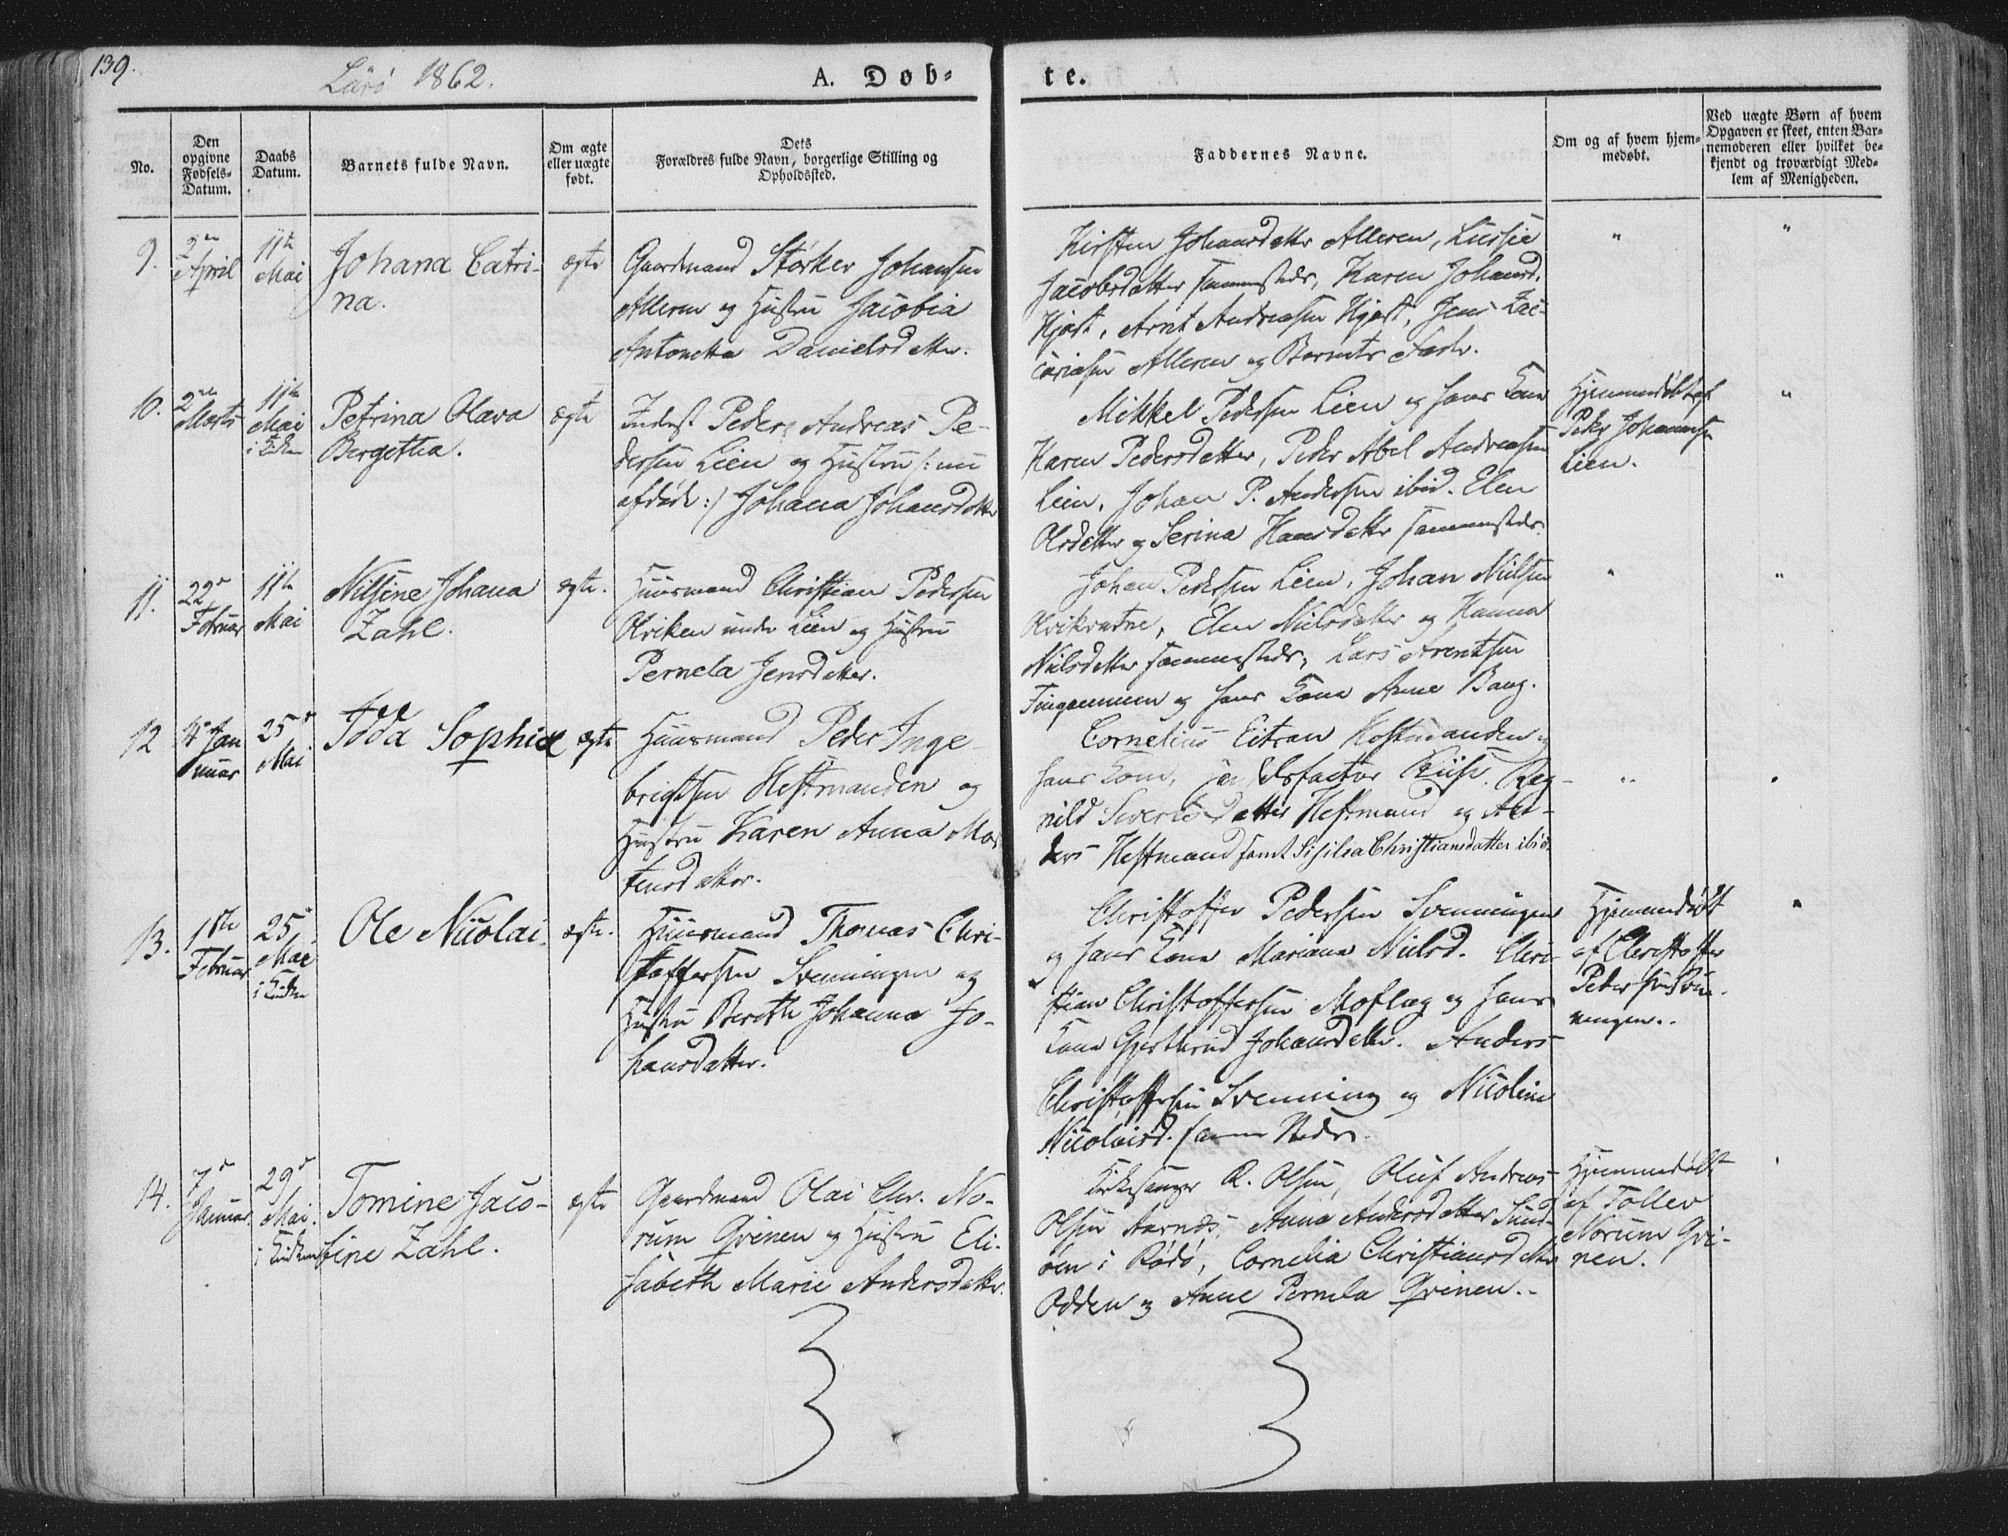 139.
Lurö 1862.
A. Døb-
te.
No.
Den opgivne Fødsels-Datum.
Daabs Datum.
Barnets fulde Navn.
Om ægte eller uægte født.
Dets Forældres fulde Navn, borgerlige Stilling og Opholdssted.
Faddernes Navne.
Om og af hvem hjem-
medøbt.
Ved uægte Børn af hvem
Opgaven er skeet, enten Bar-
nemoderen eller hvilket be-
kjendt og troværdigt Med-
lem af Menigheden.
9.
2den April
11te Mai
Johana Catri-
na.
ægte
Gaardmand Størker Johansen
Alleren og Hustru Jacobia
Antonetta Danielsdatter.
Kirsten Johansdatter Alleren, Lussie
Jacobsdatter sammesteds, Karen Johansd.
Hjart, Arnt Andreasen Hjart, Jens Zac-
cariasen Alleren og Barnets Fader.
"
"
10.
2den Marts
11te Mai i Kirken
Petrina Olava
Bergetha.
ægte
Inderst Peder Andreas Pe-
dersen Lien og Hustru /: nu
afdøde :/ Johana Johansdatter
Mikkel Pedersen Lien og hans Kone
Karen Pedersdatter, Peder Abel Andreasen
Lien, Johan P. Andersen ibid. Elen
Olsdatter og Serina Hansdatter sammesteds.
Hjemmedøbt af
Peder Johannesen
Lien.
"
11.
22d Februar
11te Mai
Nilsine Johana
Zahl.
ægte.
Huusmand Christian Pedersen
Olviken under Lien og Hustru
Pernela Jensdatter.
Johan Pedersen Lien, Johan Nielsen
Elen Nielsdatter og Hanna
Nielsdatter sammesteds, Lars Arentsen
og hans Kone Anne Bang.
"
"
12
4de Jan
uar
25d Mai
Idda Sophie
ægte
Huusmand Peder Inge-
brigtsen Hestmanden og
Hustru Karen Anna Mor
tensdatter.
Cornelius Eitran Hestmanden og
hans Kone, Riise. Reg-
nild Siversdatter Hestmand og An-
ders Hestmand samt Sisilia Christiansdatter ibid.
"
13.
1ste Februar
25d Mai i Kirken
Ole Nicolai.
ægte.
Huusmand Thomas Chri-
stoffersen Svenningen og
Hustru Bereth Johanna Jo-
hansdatter.
Christoffer Pedersen Svenningen
og hans Kone Mariana Nielsd. Chri-
stian Christoffersen Moflag og hans
Kone Gjertrud Johansdatter. Anders
Christoffersen Svenning og Nicoline
Nicolaisd. samme Steder.
Hjemmedøbt
af Christoffer
Pedersen Sven-
ningen.
14.
7d Januar
29d Mai. i Kirken
Tomine Jaco-
bine Zahl.
ægte
Gaardmand Olai Chr. No-
rum Qvinen og Hustru Eli-
sabeth Marie Andersdatter.
Kirkesanger R. Olsen, Oluf Andreas
Olsen Aarnæs, Anna Andersdatter Sund-
øen i Rødø, Cornelia Christiansdatter
Odden og Anne Pernela Qvinen.
Hjemmedøbt
af Tollev
Norum Qvi-
nen.